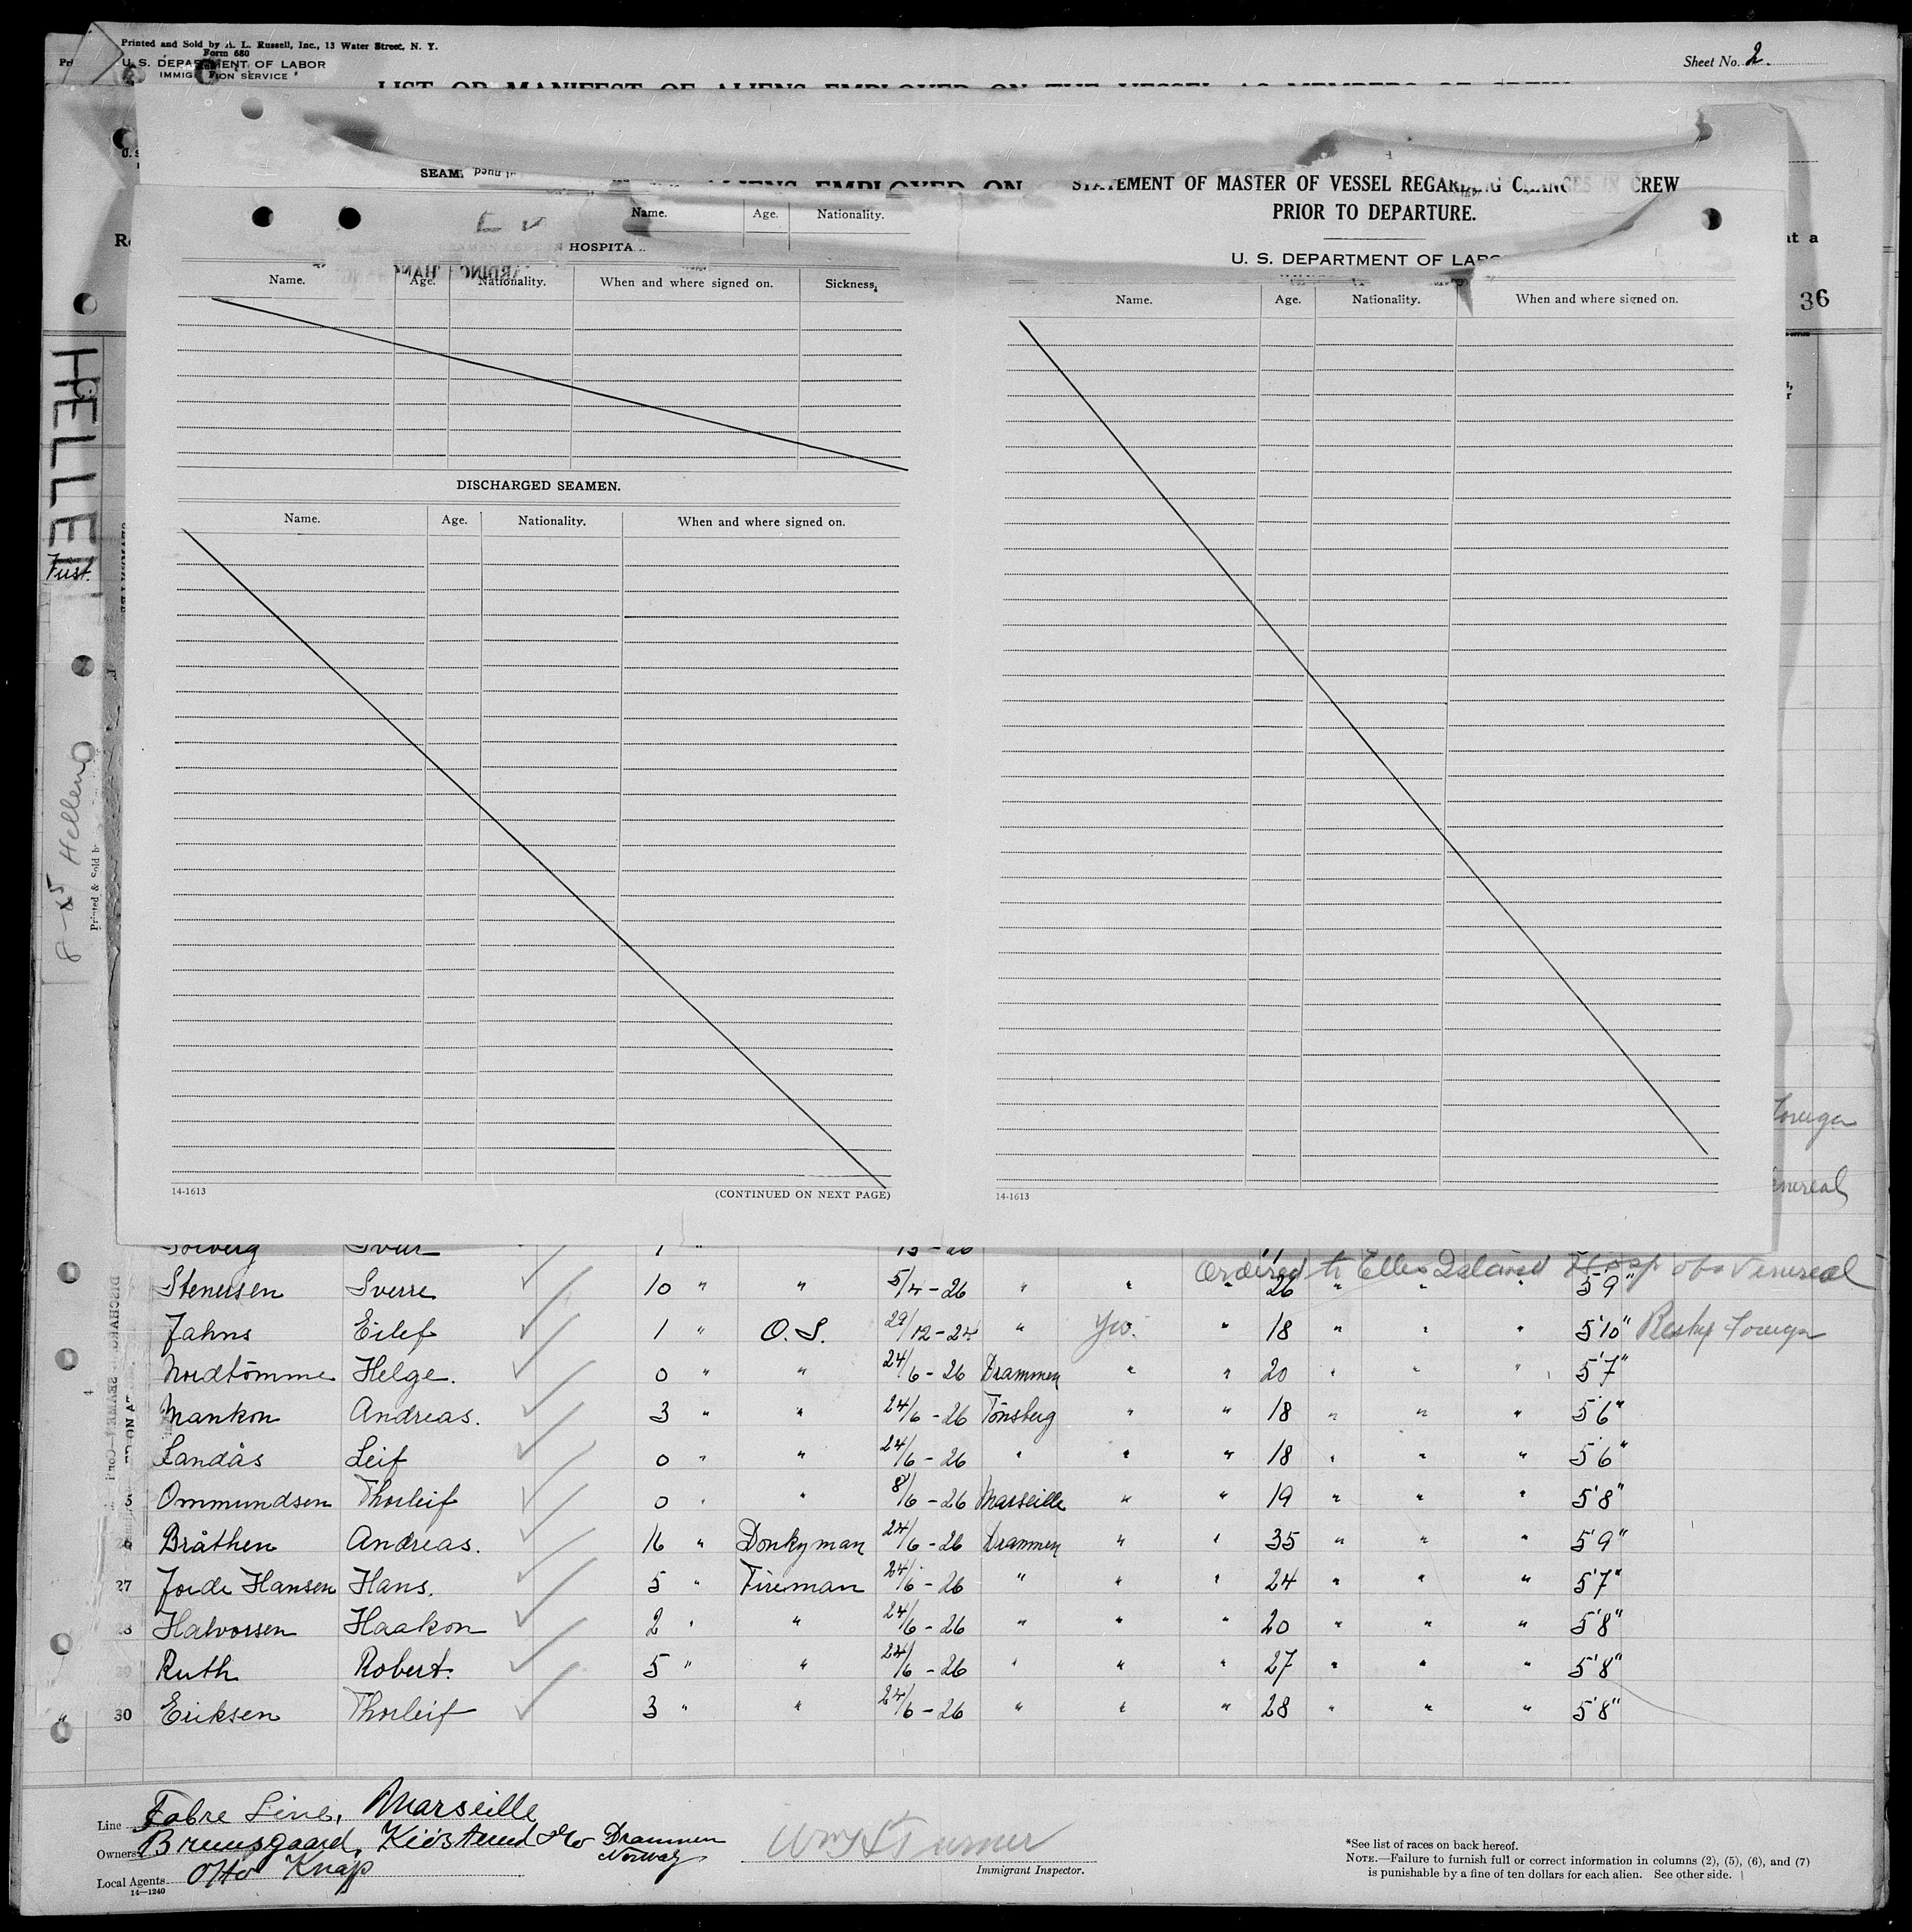 Printed and Sold by A. L. Russell, Inc., 13 Water Street, N. Y.
Form 680
U. S. DEPARTMENT OF LABOR
IMMIGRATION SERVICE
Sheet No. 2.
LIST OR MANIFEST OF ALIENS EMPLOYED ON THE VESSEL AS MEMBERS OF CREW
SEAM
ALIENS EMPLOYED ON
STATEMENT OF MASTER OF VESSEL REGARDING CHANGES IN CREW
PRIOR TO DEPARTURE.
U. S. DEPARTMENT OF LABO
Name. Age. Nationality.
HOSPITA
Name. Age. Nationality. When and where signed on. Sickness.
Name. Age. Nationality. When and where signed on.
at a
36
HELLEN
First
DISCHARGED SEAMEN.
Name. Age. Nationality. When and where signed on.
8-25 Hellen
Printed & Sold b
14-1613 (CONTINUED ON NEXT PAGE)
14-1613
Foreign
enereal
Solberg 1 "
ordered to Ellis Island Hosp obs Venereal
Stenersen Sverre 10 " " 5/4-26 " " " 26 " " " 5'9"
Jahns Eilef 1 " O.S. 29/12-24 " Yes. " 18 " " " 5'10" Reship Foreign
Nordtömme Helge. 0 " " 24/6-26 Drammen " " 20 " " " 5'7"
Mankon Andreas. 3 " " 24/6-26 Tönsberg " " 18 " " " 5'6"
Landås Leif 0 " " 24/6-26 " " " 18 " " " 5'6"
5 Ommundsen Thorleif 0 " " 8/6-26 Marseille " " 19 " " " 5'8"
26 Bråthen Andreas. 16 " Donkyman 24/6-26 Drammen " " 35 " " " 5'9"
27 Jorde Hansen Hans. 5 " Fireman 24/6-26 " " " 24 " " " 5'7"
28 Halvorsen Haakon 2 " " 24/6-26 " " " 20 " " " 5'8"
29 Ruth Robert. 5 " " 24/6-26 " " " 27 " " " 5'8"
30 Eriksen Thorleif 3 " " 24/6-26 " " " 28 " " " 5'8"
Line Fabre Line, Marseille
Owners Bruusgaard, Kiösterud & Co Drammen Norway
Local Agents Otto Knap
14—1240
Wm S Turner
Immigrant Inspector.
*See list of races on back hereof.
NOTE.—Failure to furnish full or correct information in columns (2), (5), (6), and (7)
is punishable by a fine of ten dollars for each alien. See other side.